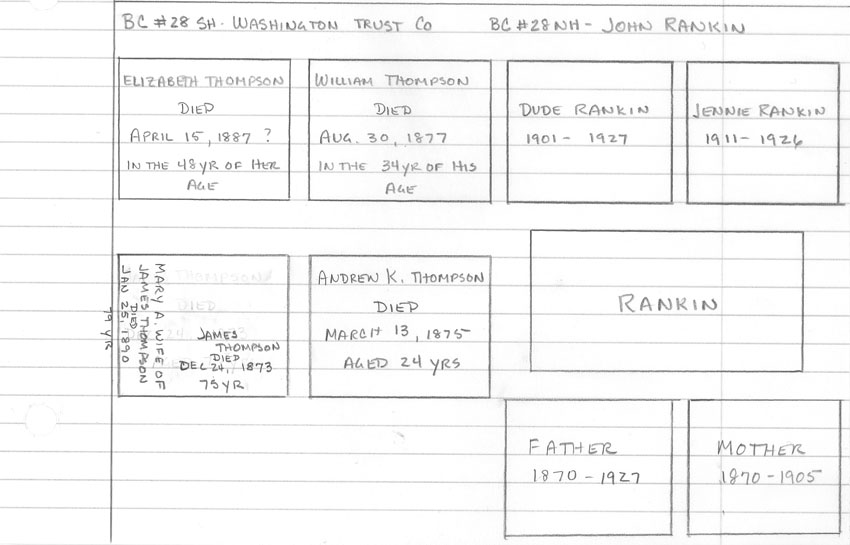 BC #28 SH- WASHINGTON TRUST CO
BC #28 NH - JOHN RANKIN
ELIZABETH THOMPSON
DIED
APRIL 15, 1887 ?
IN THE 48 YR OF HER
AGE
WILLIAM THOMPSON
DIED
AUG. 30, 1877
IN THE 34 YR OF HIS
AGE
DUDE RANKIN
1901 - 1927
JENNIE RANKIN
1911 - 1926
MARY A. WIFE OF
JAMES THOMPSON
DIED
JAN 25, 1890
79 YR
JAMES
THOMPSON
DIED
DEC 24, 1873
75 YR
ANDREW K. THOMPSON
DIED
MARCH 13, 1875
AGED 24 YRS
RANKIN
FATHER
1870 - 1927
MOTHER
1870 - 1905